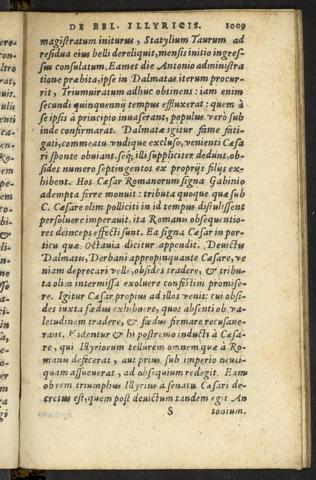 DE BEL. ILLYRICIS. 1009
magistratum initurus, Statylium Taurum ad
residua eius belli dereliquit, mensis initio ingres-
sus consulatum. Eamet die Antonio administra
tione præbita, ipse in Dalmatas iterum procur-
rit, Triumuiratum adhuc obtinens: iam enim
secundi quinquennij tempus effluxerat: quem à
se ipsis à principio inuaserant, populus verò sub
inde confirmarat. Dalmatæ igitur fame fati-
gati, commeatu vndique excluso, venienti Cæsa
ri sponte obuiant, seq́; illi suppliciter dedunt, ob-
sides numero septingentos ex proprijs filijs ex-
hibent. Hos Cæsar Romanorum signa Gabinio
adempta ferre monuit: tributa quoque quæ sub
C. Cæsare olim polliciti in id tempus distulissent
persoluere imperauit. ita Romanis obsequentio-
res deinceps effecti sunt. Ea signa Cæsar in por-
ticu quæ Octauia dicitur appendit. Deuictis
Dalmatis, Derbani appropinquante Cæsare, ve
niam deprecari velle, obsides tradere, & tribu-
ta olim intermissa exoluere confestim promise-
re. Igitur Cæsar propius ad illos venit: cui obsi-
des iuxta fœdus exhibuere, quos absenti ob va-
letudinem tradere, & fœdus firmare recusaue-
rant. Videntur & hi postremo inducti à Cæsa-
re, qui Illyriorum tellurem omnem quæ à Ro-
manis defecerat, aut prius sub imperio neuti-
quam assueuerat, ad obsequium redegit. Eam
ob rem triumphus Illyrius à senatu Cæsari de-
cretus est, quem post deuictum tandem egit An
S tonium.